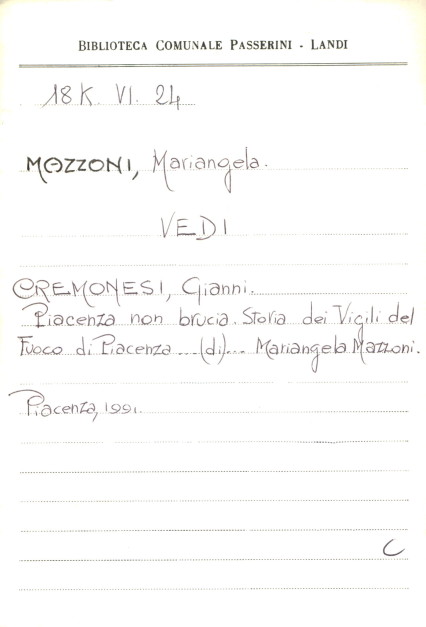 BIBLIOTECA COMUNALE PASSERINI - LANDI
18 K. VI. 24
MAZZONI, Mariangela.
VEDI
CREMONESI, Gianni.
Piacenza non brucia. Storia dei Vigili del
Fuoco di Piacenza ... (di) ... Mariangela Mazzoni.
Piacenza, 1991.
C